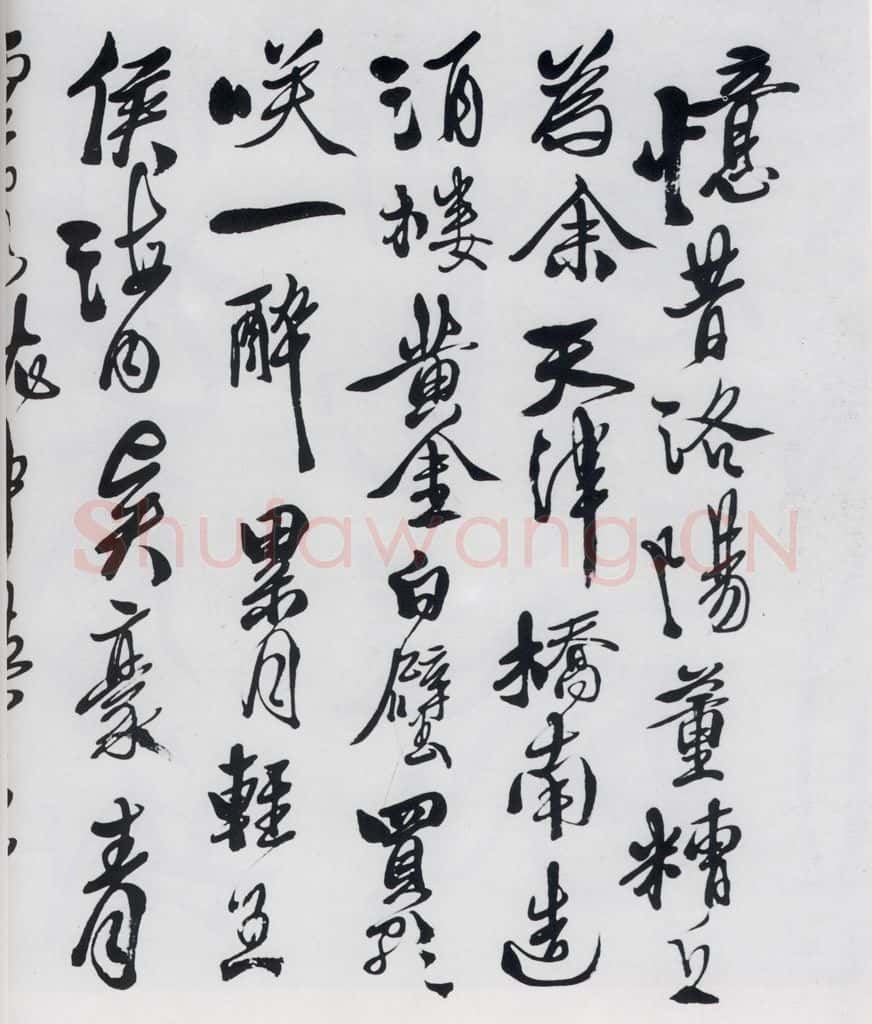 憶昔洛陽董糟丘
為余天津橋南造
酒樓黃金白璧買歌
咲一醉累月輕王
侯海內賢豪青
Shufawang.CN